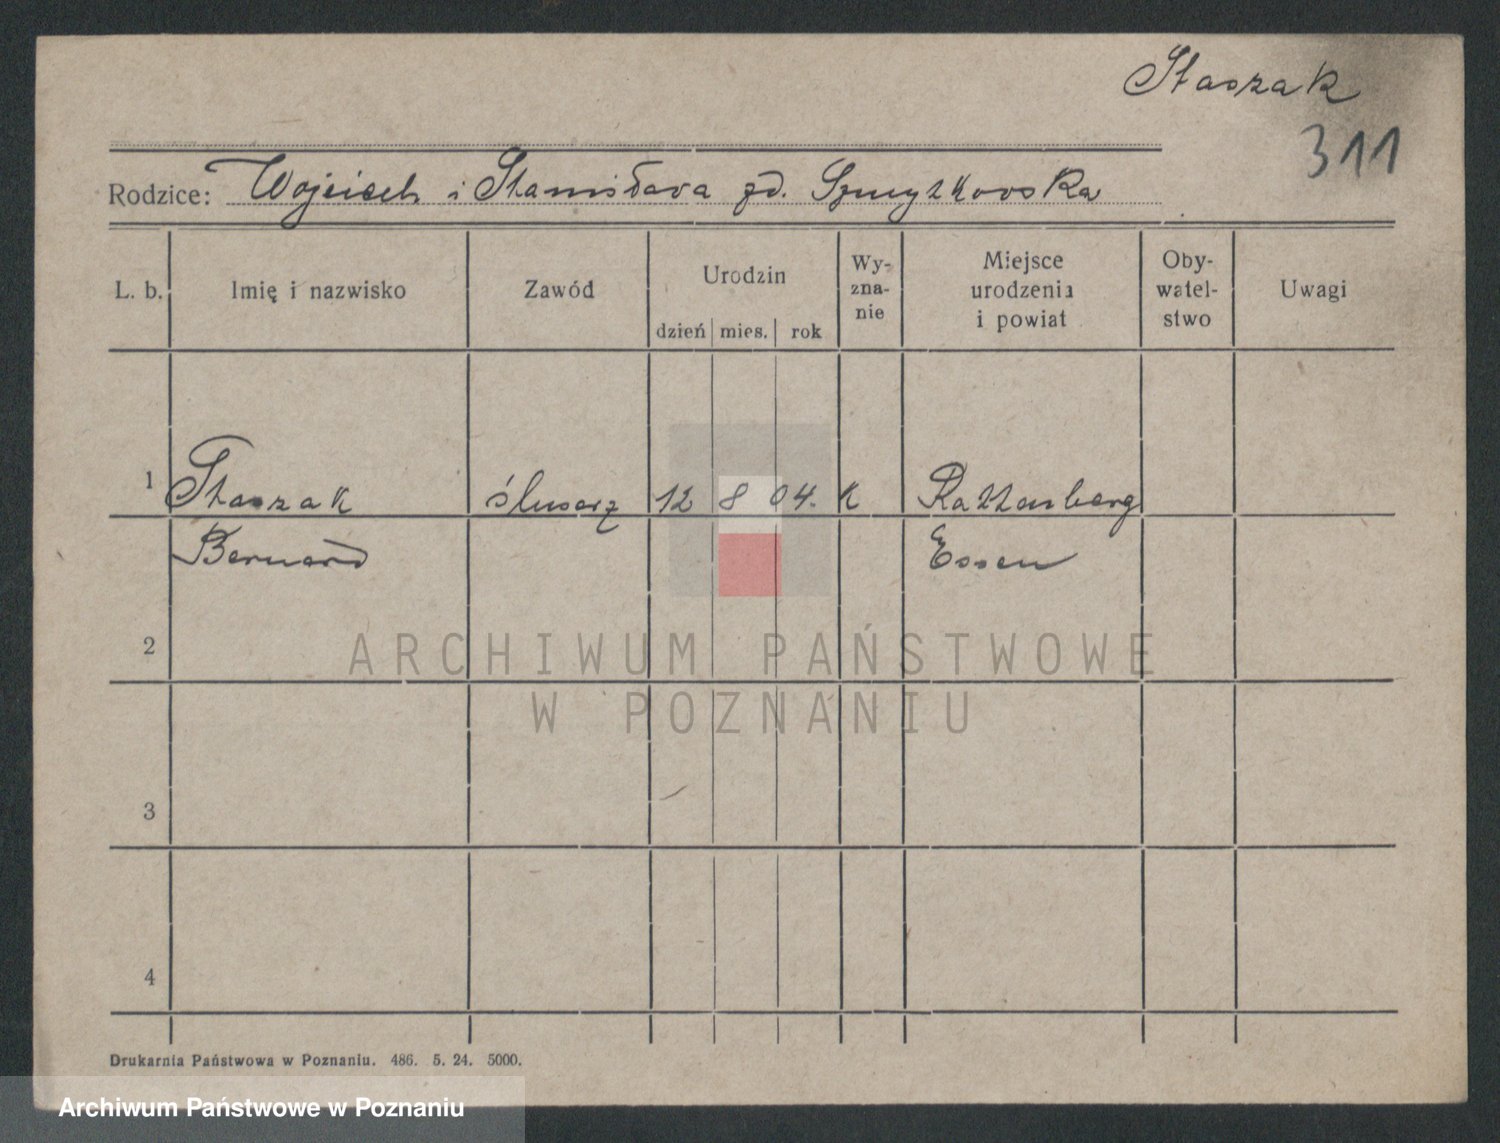 Staszak
311
Rodzice: Wojciech i Stanisława zd. Szmyzkowska
L. b. Imię i nazwisko Zawód Urodzin dzień mies. rok Wy-zna-nie Miejsce urodzenia i powiat Oby-watel-stwo Uwagi
1 Staszak ślusarz 12 8 04. k
Bernard Essen
2
ARCHIWUM PAŃSTWOWE
W POZNANIU
3
4
Drukarnia Państwowa w Poznaniu. 486. 5. 24. 5000.
Archiwum Państwowe w Poznaniu